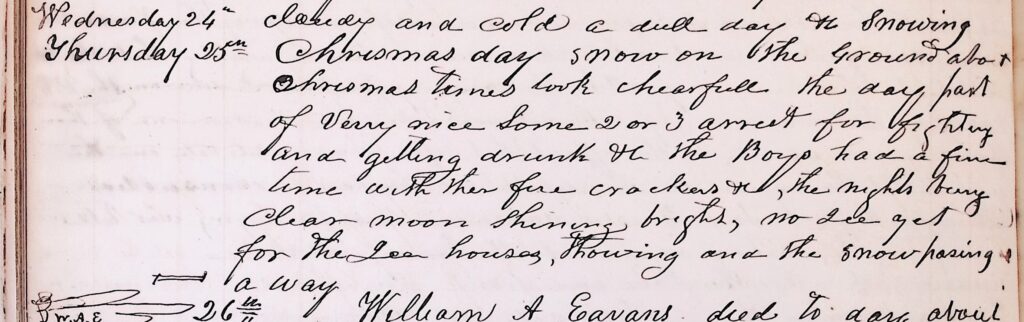 Wednesday 24th cloudy and cold a dull day &c Snowing
Thursday 25th Chrismas day snow on the Ground about
Chrismas times look chearfull the day past
of verry nice some 2 or 3 arrest for fighting
and getting drunk &c the Boys had a fine
time with ther fire crackers &c, the nights being
clear moon shining bright, no Ice yet
for the Ice houses, thowing and the snow pasing
a way
W.A.E 26th William A Eavans died to day about